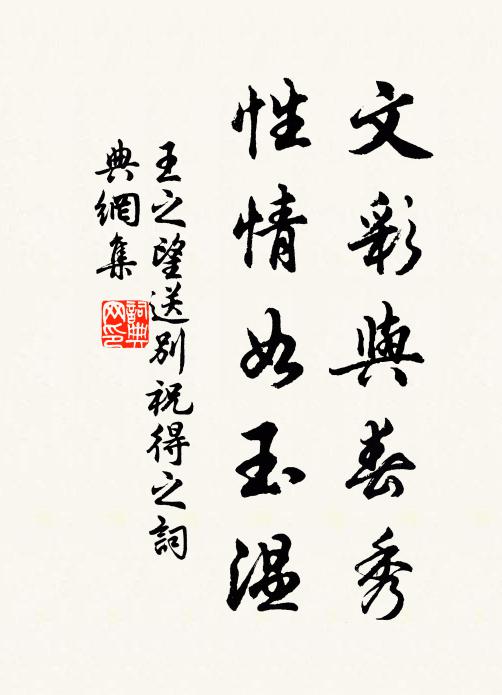 文彩與春秀
性情如玉溫
王之望送別祝得之詞
典網集
詞典
网印